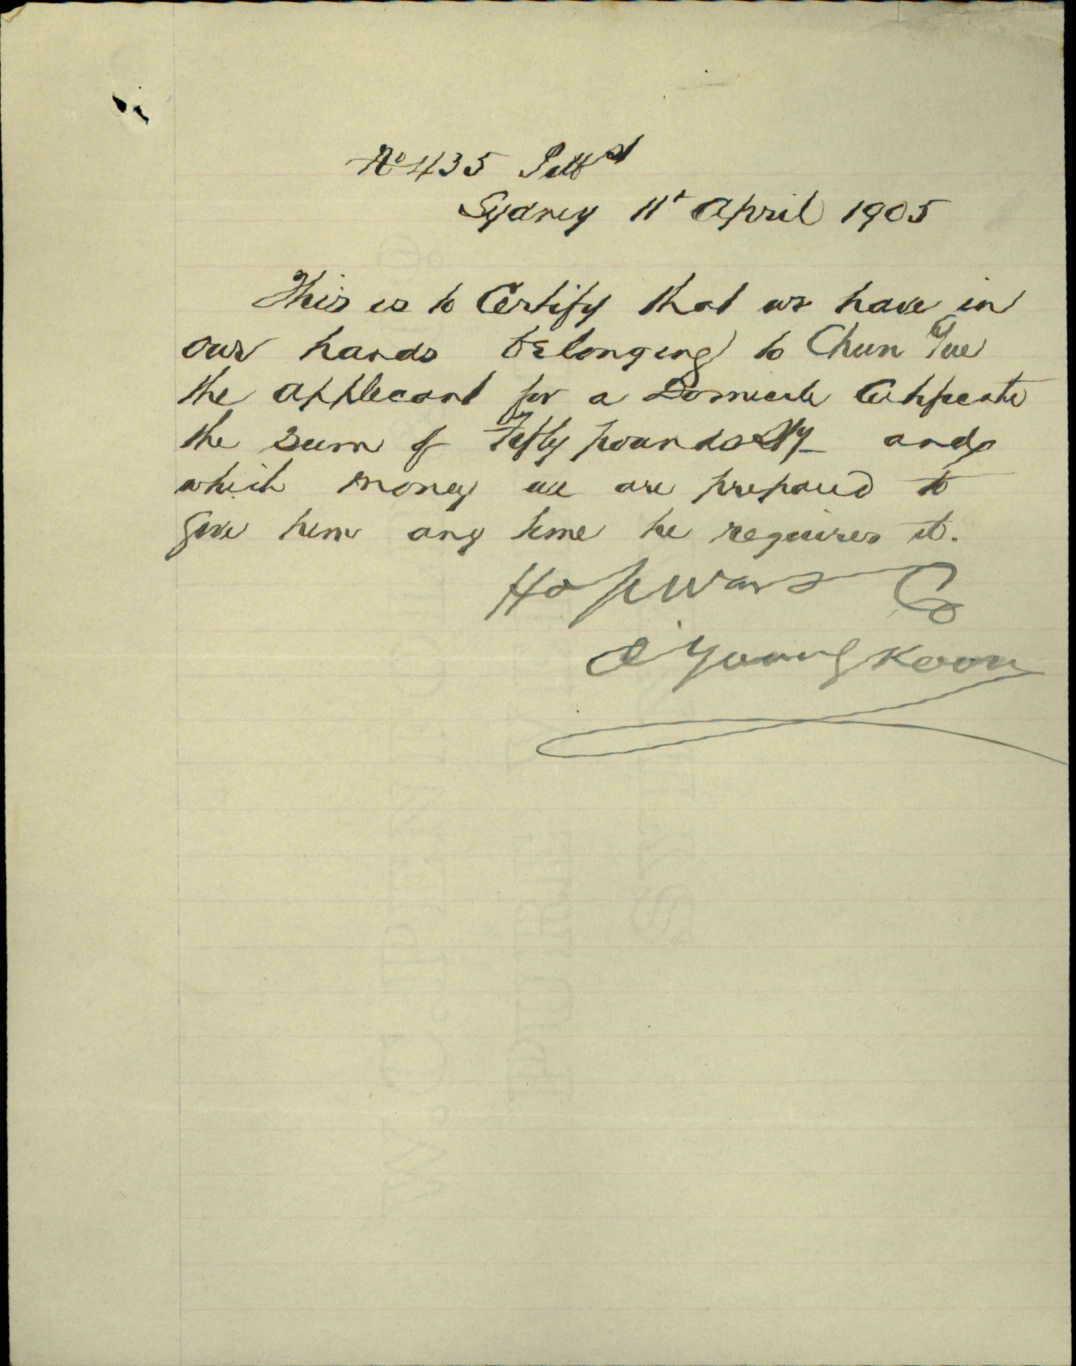 No 435 Pitt St
Sydney 11t April 1905
This is to Certify that we have in
our hands belonging to Chun Yue
the applicant for a Domicile Certificate
the sum of Fifty pounds and
which money we are prepared to
give him any time he requires it.
Hop War & Co
Young Koon